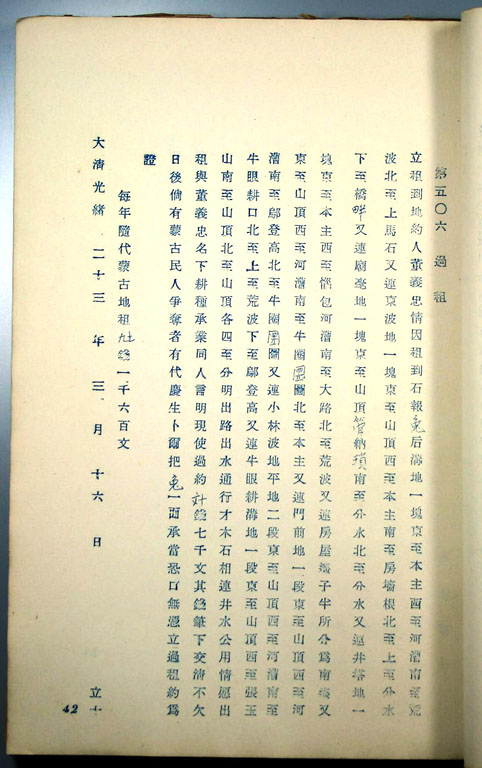 第五〇六 過租
立租到地約人董義忠情因租到石報兔后溝地一塊東至本主西至河漕南至荒
波北至上馬石又連東波地一塊東至山頂西至本主南至房墻根北至上至分水
下至橋畔又連廟毫地一塊東至山頂管納項南至分水北至分水又連井塔地一
塊東至本主西至惱包河漕南至大路北至荒波又連房屋場子半所分為南場又
東至山頂西至河漕南至牛圈圐圙北至本主又連門前地一段東至山頂西至河
漕南至鄔登高北至牛圈圐圙又連小林波地平地二段東至山頂西至河漕南至
牛眼耕口北至上至荒波下至鄔登高又連牛眼耕溝地一段東至山頂西至張玉
山南至山頂北至山頂各四至分明出路出水通行才木石相連井水公用情愿出
租與董義忠名下耕種承業同人言明現使過約錢七千文其錢筆下交清不欠
日後倘有蒙古民人爭奪者有代慶生卜爾把兔一面承當恐口無憑立過租約為
證
每年隨代蒙古地租錢一千六百文
大清光緒 二十三 年 三 月 十六 日 立十
42